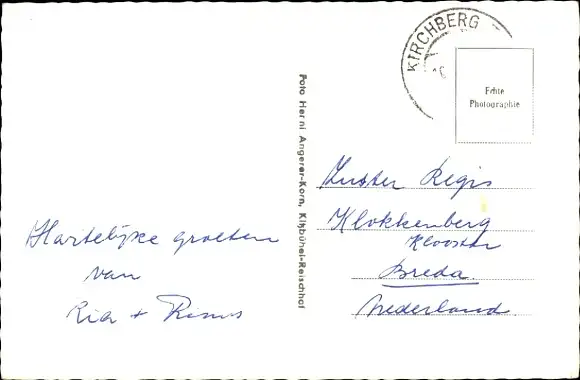 Hartelijke groeten
van
Ria + Rinus
Foto Herni Angerer-Korn, Kitzbühel-Reischhof
KIRCHBERG
Echte
Photographie
Zuster Regis
Klokkenberg
Klooster
Breda
Nederland